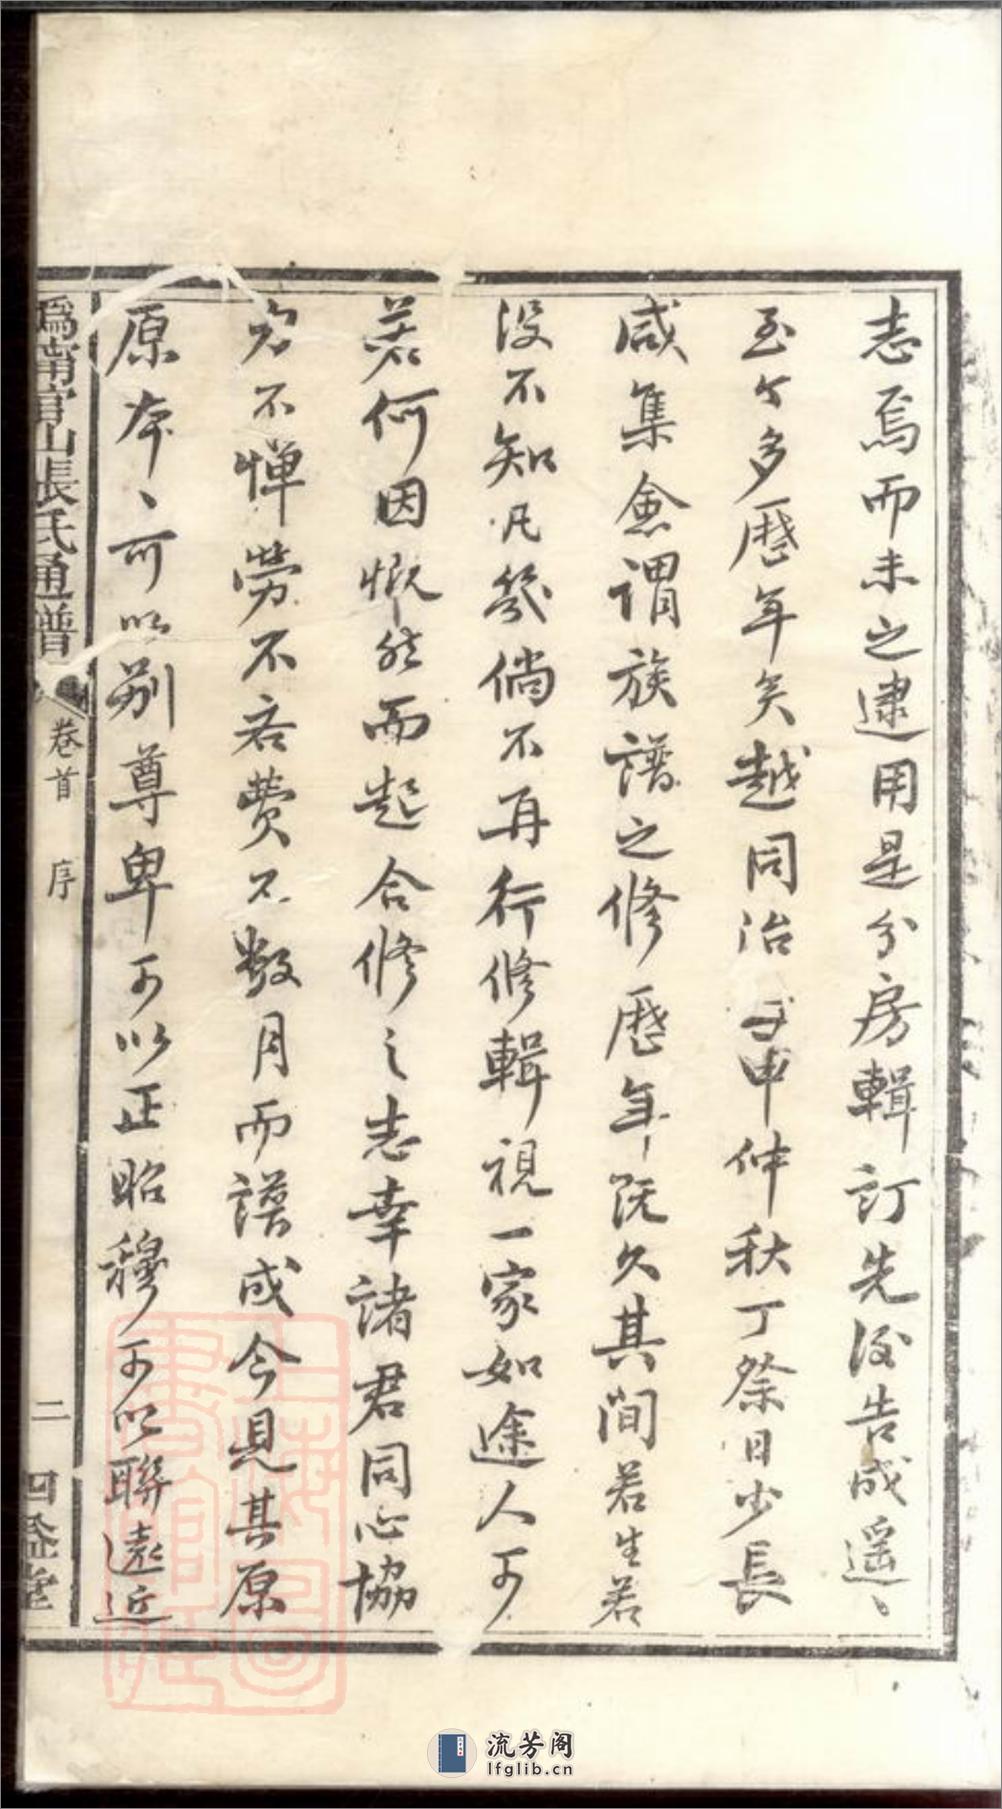 志焉而未之逮用是分房輯訂先後告成遥、
至今多歷年矣越同治壬申仲秋丁祭日少長
咸集僉謂族譜之修歷年既久其間若生若
没不知凡幾倘不再行修輯視一家如途人可
若何因慨然而起合修之志幸諸君同心協
力不憚勞不吝費不数月而譜成今見其原
原本、可以别尊卑可以正昭穆可以聯遠近
爲南官山張氏通譜
卷首 序
二
四益堂
上海圖書館藏
流芳阁
lfglib.cn